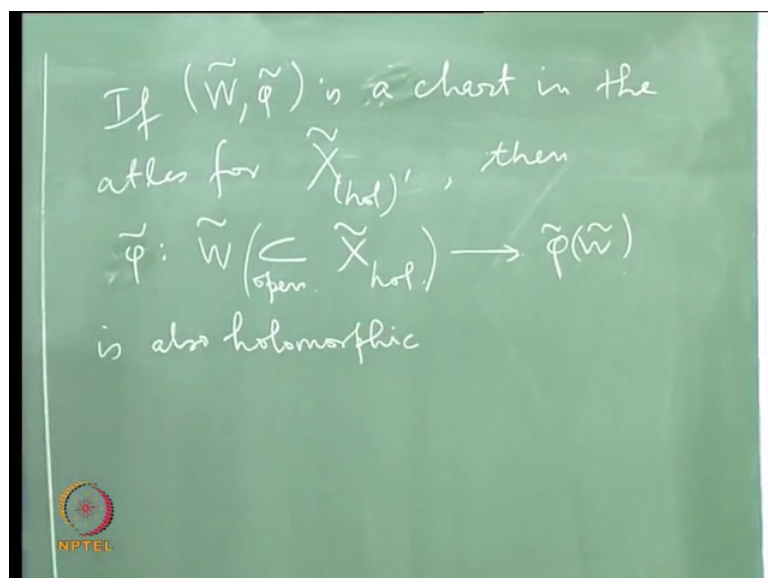 If (W̃, φ̃) is a chart in the
atlas for X̃_(hol)', then
φ̃ : W̃ (⊂_open. X̃_hol.) ⟶ φ̃(W̃)
is also holomorphic
NPTEL